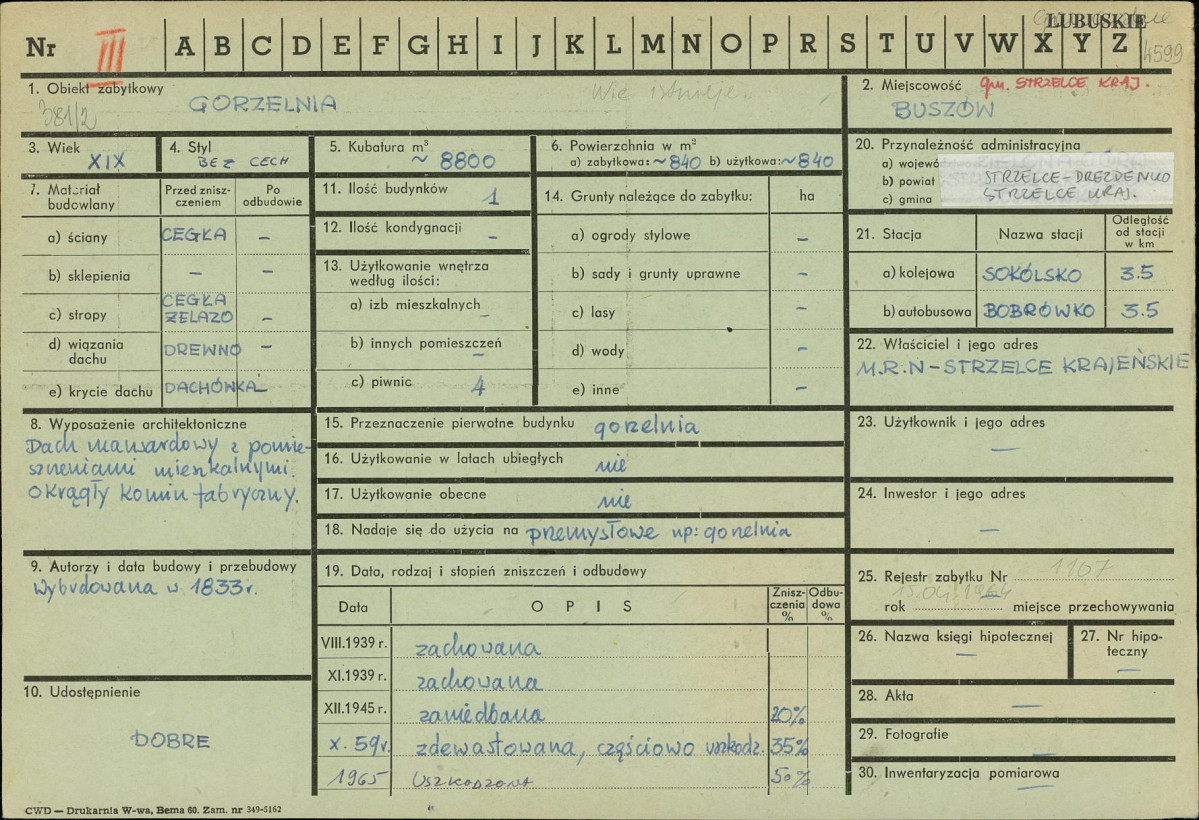 LUBUSKIE
Nr III A B C D E F G H I J K L M N O P R S T U V W X Y Z
4599
1. Obiekt zabytkowy
GORZELNIA
381/2
Nie istnieje
2. Miejscowość gm. STRZELCE KRAJ.
BUSZÓW
3. Wiek
XIX
4. Styl
BEZ CECH
5. Kubatura m³
~ 8800
6. Powierzchnia w m²
a) zabytkowa: ~840 b) użytkowa: ~840
7. Materiał budowlany
Przed zniszczeniem
Po odbudowie
a) ściany CEGŁA –
b) sklepienia – –
c) stropy CEGŁA ŻELAZO –
d) wiązania dachu DREWNO –
e) krycie dachu DACHÓWKA –
8. Wyposażenie architektoniczne
Dach mansardowy z pomie-
szczeniami mieszkalnymi.
Okrągły komin fabryczny.
9. Autorzy i data budowy i przebudowy
Wybudowana w 1833 r.
10. Udostępnienie
DOBRE
11. Ilość budynków
1
12. Ilość kondygnacji
–
13. Użytkowanie wnętrza
według ilości:
a) izb mieszkalnych –
b) innych pomieszczeń –
c) piwnic 4
14. Grunty należące do zabytku: ha
a) ogrody stylowe –
b) sady i grunty uprawne –
c) lasy –
d) wody –
e) inne –
15. Przeznaczenie pierwotne budynku gorzelnia
16. Użytkowanie w latach ubiegłych nie
17. Użytkowanie obecne nie
18. Nadaje się do użycia na przemysłowe np: gorzelnia
19. Data, rodzaj i stopień zniszczeń i odbudowy
Data OPIS Zniszczenia % Odbudowa %
VIII.1939 r. zachowana
XI.1939 r. zachowana
XII.1945 r. zaniedbana 20%
X. 59 r. zdewastowana, częściowo uszkodz. 35%
1965 USZKODZONA 50%
20. Przynależność administracyjna
a) wojewó ZIELONA GÓRA
b) powiat STRZELCE-DREZDENKO
c) gmina STRZELCE KRAJ.
21. Stacja
Nazwa stacji
Odległość od stacji w km
a) kolejowa SOKÓLSKO 3.5
b) autobusowa BOBRÓWKO 3.5
22. Właściciel i jego adres
M.R.N – STRZELCE KRAJEŃSKIE
23. Użytkownik i jego adres
–
24. Inwestor i jego adres
–
25. Rejestr zabytku Nr 1107
rok 15.04.1964 miejsce przechowywania
26. Nazwa księgi hipotecznej
–
27. Nr hipoteczny
–
28. Akta
–
29. Fotografie
–
30. Inwentaryzacja pomiarowa
–
CWD — Drukarnia W-wa, Bema 60. Zam. nr 349-5162